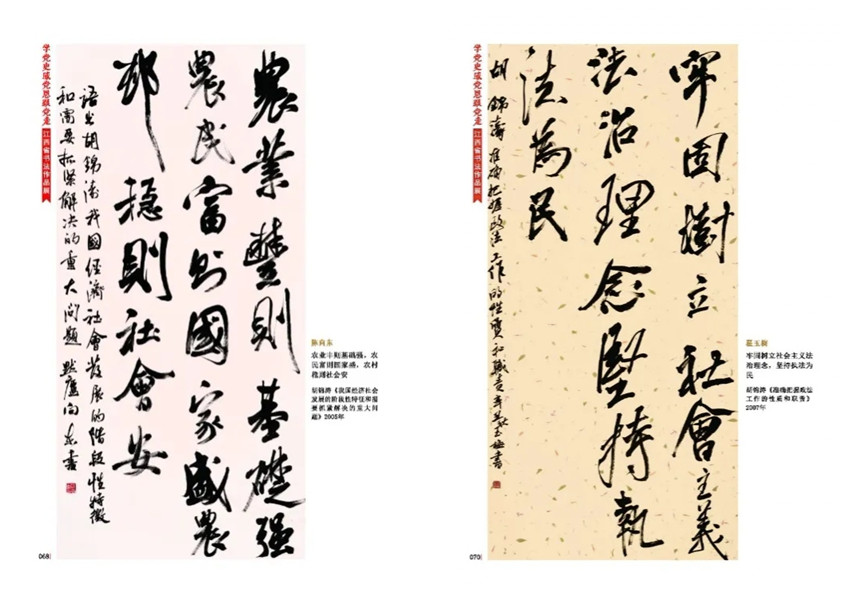 学党史感党恩跟党走
江西省书法作品展
農業豐則基礎强
農民富則國家盛農
邨穩則社會安
語出胡錦濤我國經濟社會發展的階段性特徵
和需要抓緊解決的重大問題 向東書
陈向东
农业丰则基础强，农
民富则国家盛，农村
稳则社会安
胡锦涛《我国经济社会
发展的阶段性特征和需
要抓紧解决的重大问
题》2005年
068
学党史感党恩跟党走
江西省书法作品展
牢固樹立社會主義
法治理念堅持執
法為民
胡錦濤准確把握政法工作的性質和職責 書
牢固树立社会主义法
治理念，坚持执法为
民
胡锦涛《准确把握政法
工作的性质和职责》
2007年
070